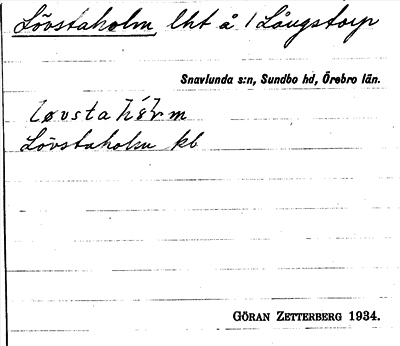 Lövstaholm, lht å 1 Långstorp
Snavlunda s:n, Sundbo hd, Örebro län.
Lövstaholm kb
GÖRAN ZETTERBERG 1934.